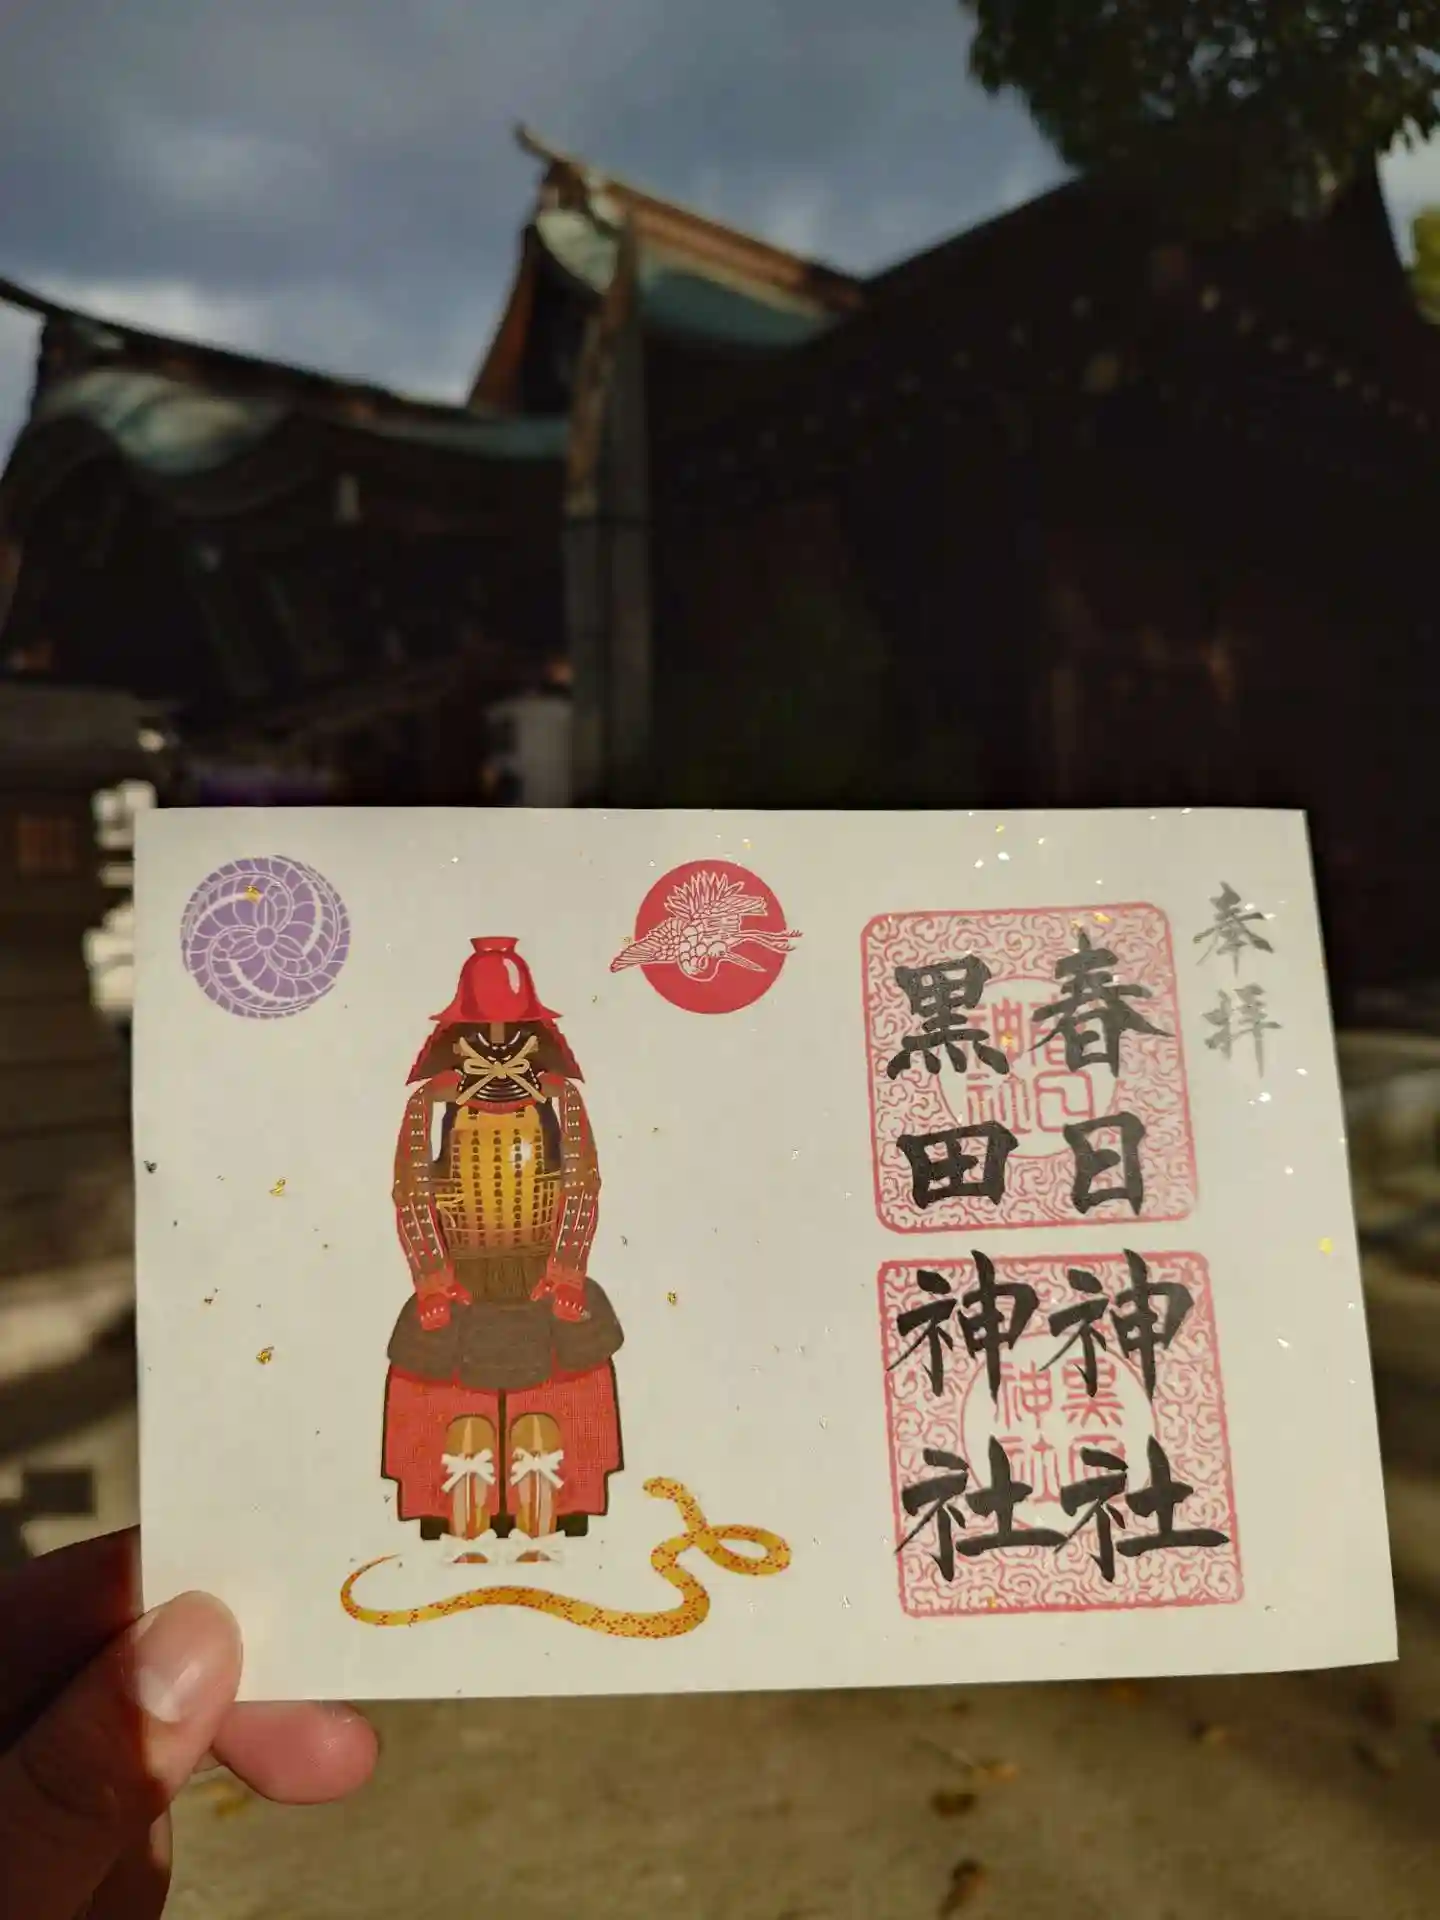 奉拝
春日神社
黒田神社
春日神社
黒田神社